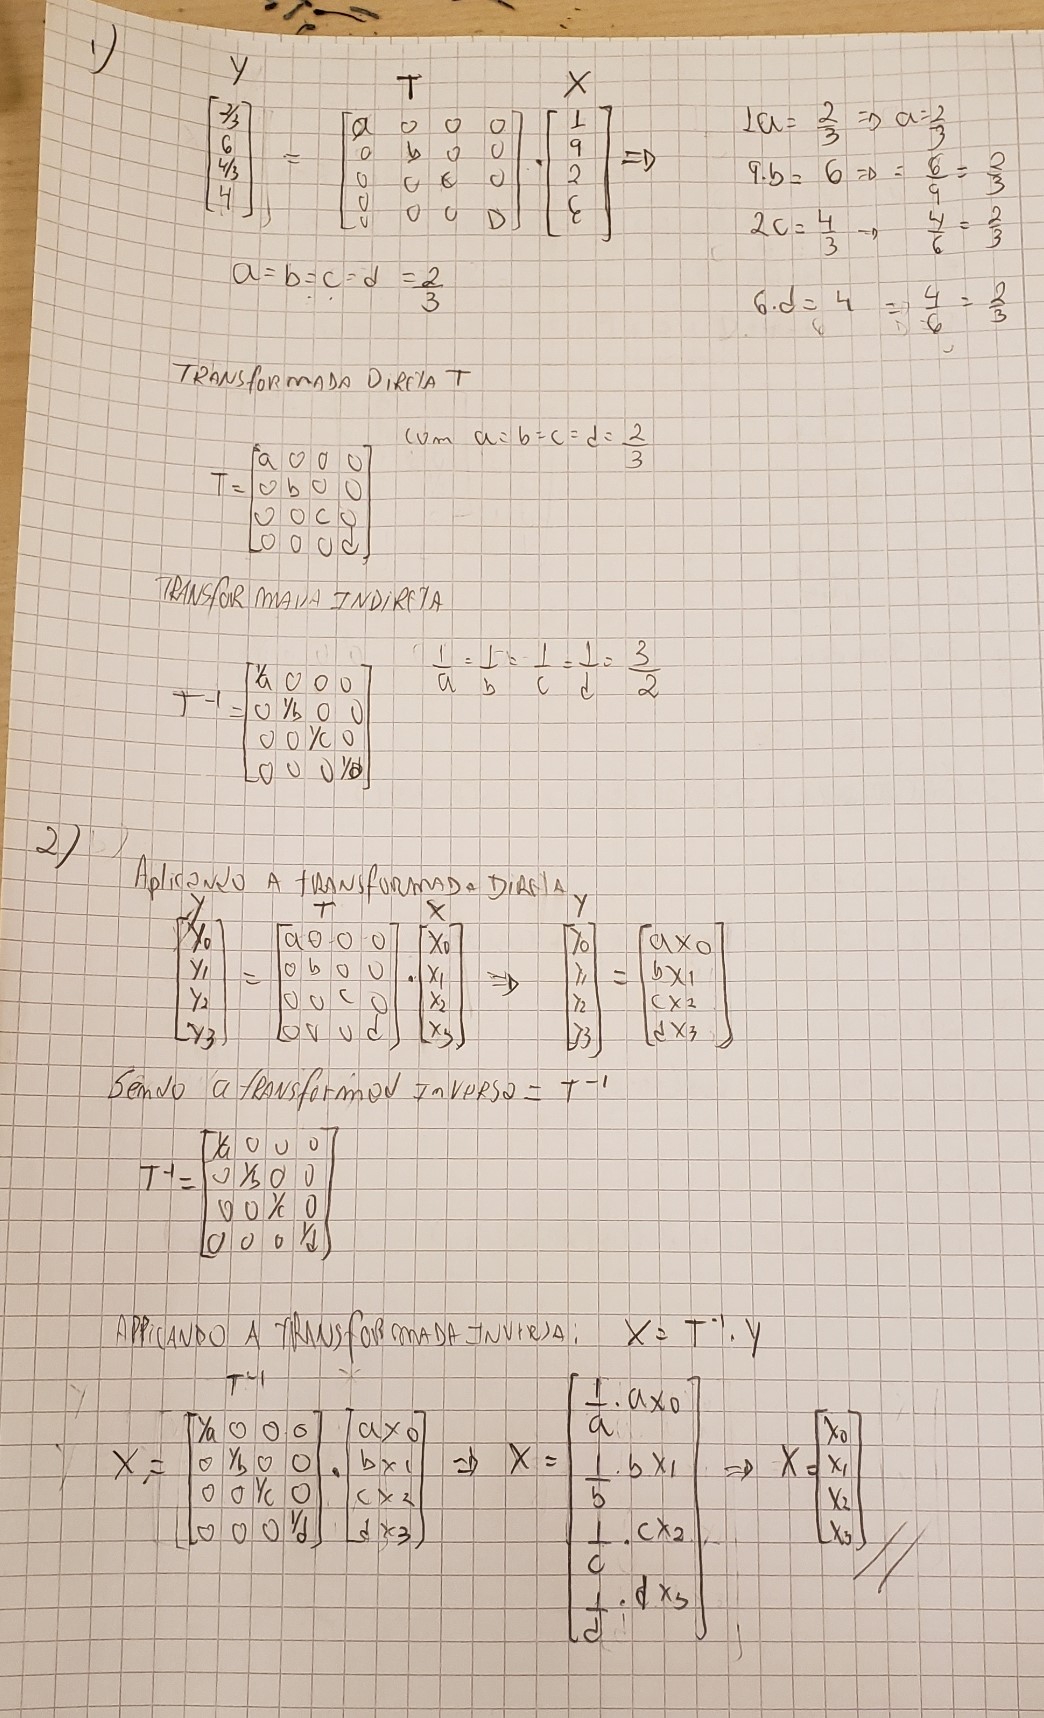 1)
Y T X
[2/3 6 4/3 4] = [a 0 0 0
0 b 0 0
0 0 c 0
0 0 0 D] · [1 9 2 6] =>
1a = 2/3 => a = 2/3
9.b = 6 => = 6/9 = 2/3
2c = 4/3 -> 4/6 = 2/3
6.d = 4 => 4/6 = 2/3
a = b = c = d = 2/3
TRANSFORMADA DIRETA T
com a = b = c = d = 2/3
T = [a 0 0 0
0 b 0 0
0 0 c 0
0 0 0 d]
TRANSFORMADA INDIRETA
1/a = 1/b = 1/c = 1/d = 3/2
T⁻¹ = [1/a 0 0 0
0 1/b 0 0
0 0 1/c 0
0 0 0 1/d]
2)
Aplicando A TRANSFORMADA DIRETA
Y T X Y
[Y0 Y1 Y2 Y3] = [a 0 0 0
0 b 0 0
0 0 c 0
0 0 0 d] · [X0 X1 X2 X3] => [Y0 Y1 Y2 Y3] = [aX0 bX1 cX2 dX3]
Sendo a TRANSformad INVERSA = T⁻¹
T⁻¹ = [1/a 0 0 0
0 1/b 0 0
0 0 1/c 0
0 0 0 1/d]
APLICANDO A TRANSFORMADA INVERSA: X = T⁻¹. Y
T⁻¹
X = [1/a 0 0 0
0 1/b 0 0
0 0 1/c 0
0 0 0 1/d] · [aX0 bX1 cX2 dX3] => X = [1/a . aX0 1/b . bX1 1/c . cX2 1/d . dX3] => X = [X0 X1 X2 X3] //